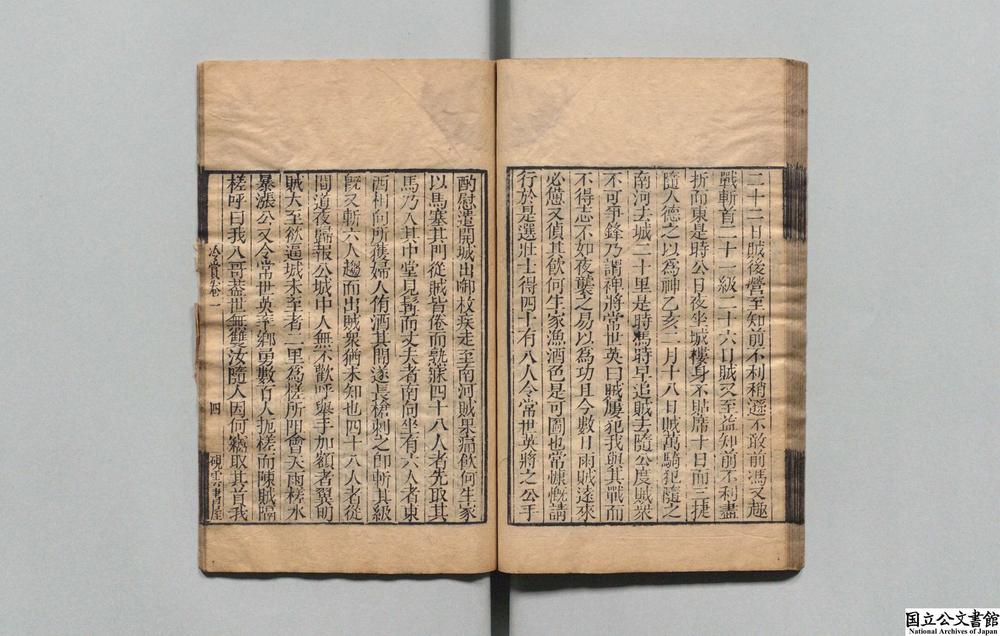 二十二日賊後營至知前不利稍遜不敢前馮又趣
戰斬首二十一級二十六日賊又至益知前不利盡
折而東是時公日夜坐城樓身不貼席十日而三捷
隨人德之以為神乙亥二月十八日賊萬騎犯隨之
南河去城二十里是時馮時早追賊去隨公度賊衆
不可爭鋒乃謂裨將常世英曰賊屢犯我與其戰而
不得志不如夜襲之易以為功且今數日雨賊遠來
必憊又偵其飲何生家漁酒色是可圖也常慷慨請
行於是選壯士得四十有八人令常世英將之公手
酌慰遣開城出啣枚疾走至南河賊果痛飲何生家
以馬塞其門從賊皆倦而就寐四十八人者先取其
馬乃入其中堂見髯而丈夫者南向坐有六人者東
西相向所獲婦人侑酒其間遂長槍刺之即斬其級
旣又斬六人趨而出賊衆猶未知也四十八人者從
間道夜歸報公城中人無不歡呼舉手加額者翼明
賊大至欲逼城未至者二里為槎所阻會天雨槎水
暴漲公又令常世英率鄉勇數百人扼槎而陳賊隔
槎呼曰我八哥葢世無雙汝隨人因何竊取其首我
卷一
四
硯雲書屋
国立公文書館
National Archives of Japan